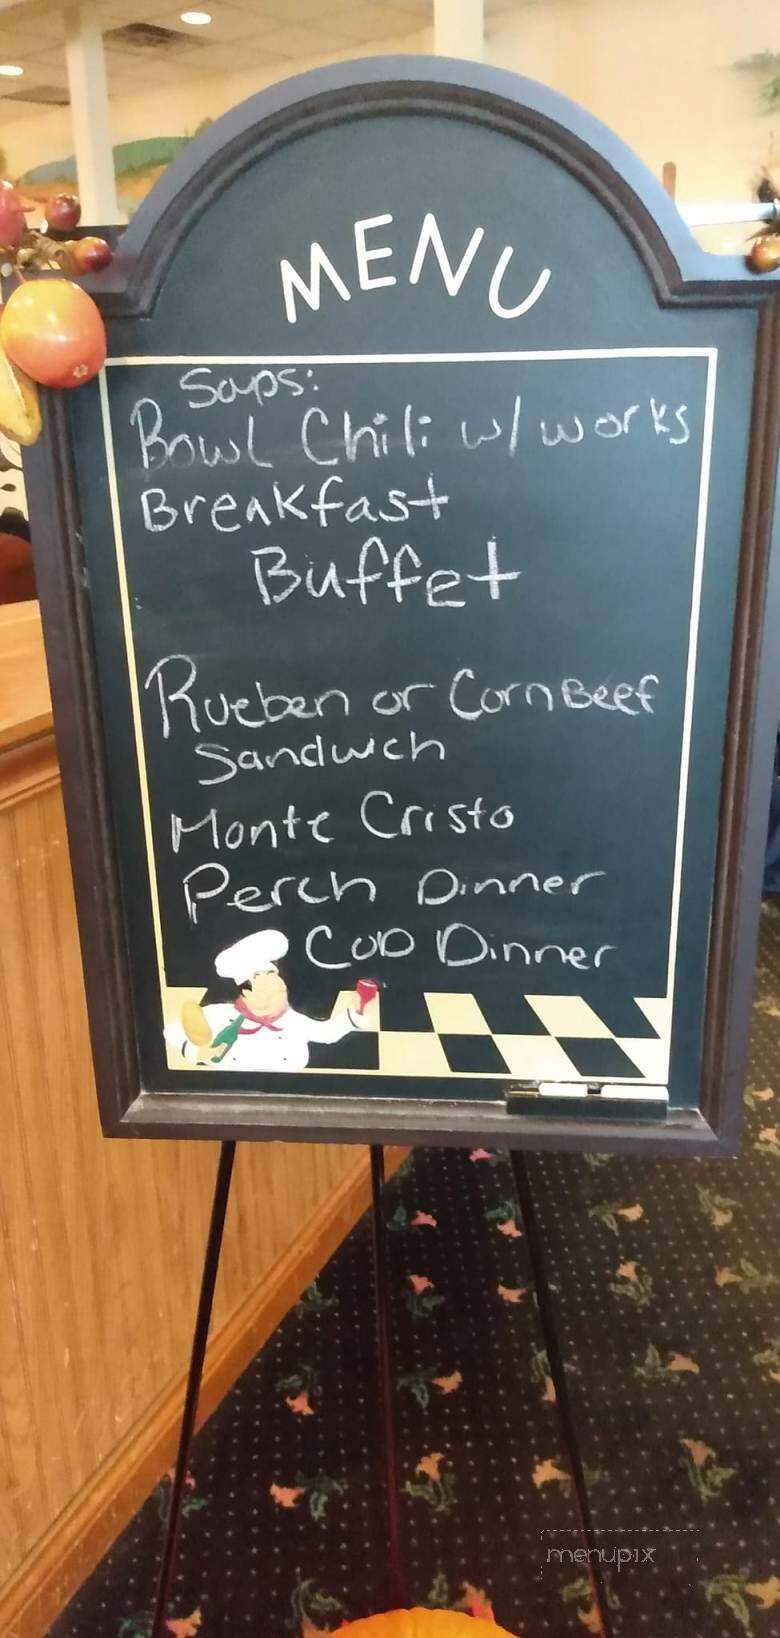 MENU
Soups:
Bowl Chili w/ works
Breakfast
Buffet
Rueben or Corn Beef
Sandwich
Monte Cristo
Perch Dinner
COD Dinner
menupix